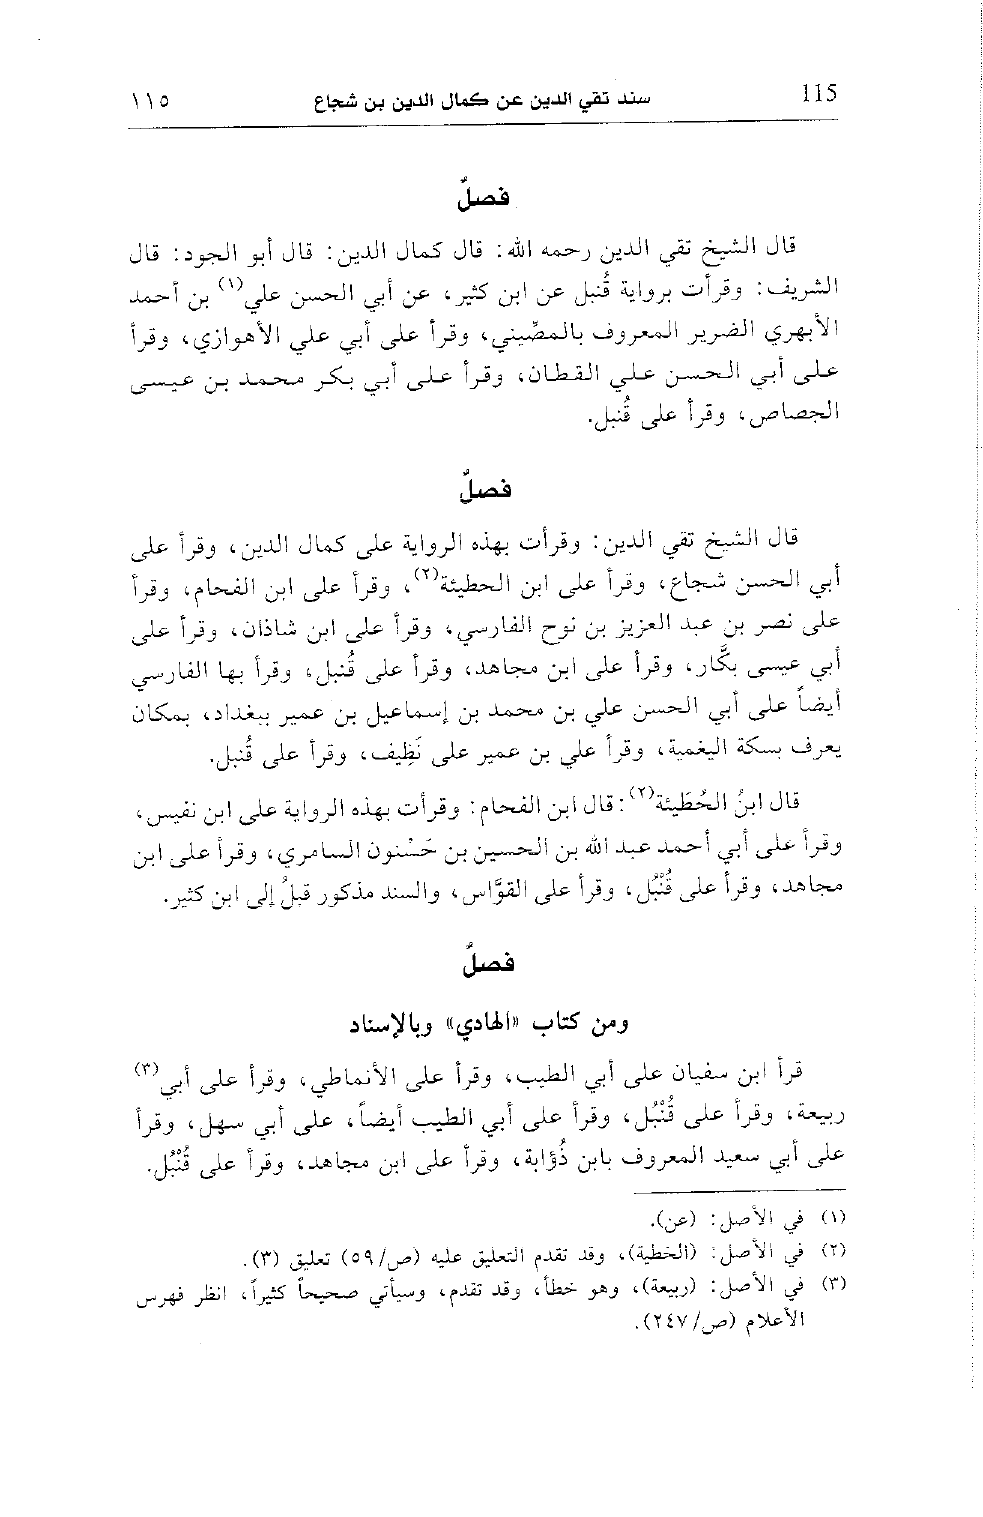 115
سند تقي الدين عن كمال الدين بن شجاع
١١٥
فصلٌ
قال الشيخ تقي الدين رحمه الله: قال كمال الدين: قال أبو الجود: قال
الشريف: وقرأت برواية قُنبل عن ابن كثير، عن أبي الحسن علي(١) بن أحمد
الأبهري الضرير المعروف بالمصِّيني، وقرأ على أبي علي الأهوازي، وقرأ
على أبي الحسن علي القطان، وقرأ على أبي بكر محمد بن عيسى
الجصاص، وقرأ على قُنبل.
فصلٌ
قال الشيخ تقي الدين: وقرأت بهذه الرواية على كمال الدين، وقرأ على
أبي الحسن شجاع، وقرأ على ابن الحطيئة(٢)، وقرأ على ابن الفحام، وقرأ
على نصر بن عبد العزيز بن نوح الفارسي، وقرأ على ابن شاذان، وقرأ على
أبي عيسى بكَّار، وقرأ على ابن مجاهد، وقرأ على قُنبل، وقرأ بها الفارسي
أيضاً على أبي الحسن علي بن محمد بن إسماعيل بن عمير ببغداد، بمكان
يعرف بسكة اليغمية، وقرأ علي بن عمير على نَظِيف، وقرأ على قُنبل.
قال ابنُ الحُطَيئة(٢): قال ابن الفحام: وقرأت بهذه الرواية على ابن نفيس،
وقرأ على أبي أحمد عبد الله بن الحسين بن حَسْنون السامري، وقرأ على ابن
مجاهد، وقرأ على قُنْبُل، وقرأ على القوَّاس، والسند مذكور قبلُ إلى ابن كثير.
فصلٌ
ومن كتاب «الهادي» وبالإسناد
قرأ ابن سفيان على أبي الطيب، وقرأ على الأنماطي، وقرأ على أبي(٣)
ربيعة، وقرأ على قُنْبُل، وقرأ على أبي الطيب أيضاً، على أبي سهل، وقرأ
على أبي سعيد المعروف بابن ذُؤابة، وقرأ على ابن مجاهد، وقرأ على قُنْبُل.
(١) في الأصل: (عن).
(٢) في الأصل: (الخطية)، وقد تقدم التعليق عليه (ص/٥٩) تعليق (٣).
(٣) في الأصل: (ربيعة)، وهو خطأ، وقد تقدم، وسيأتي صحيحاً كثيراً، انظر فهرس
الأعلام (ص/٢٤٧).